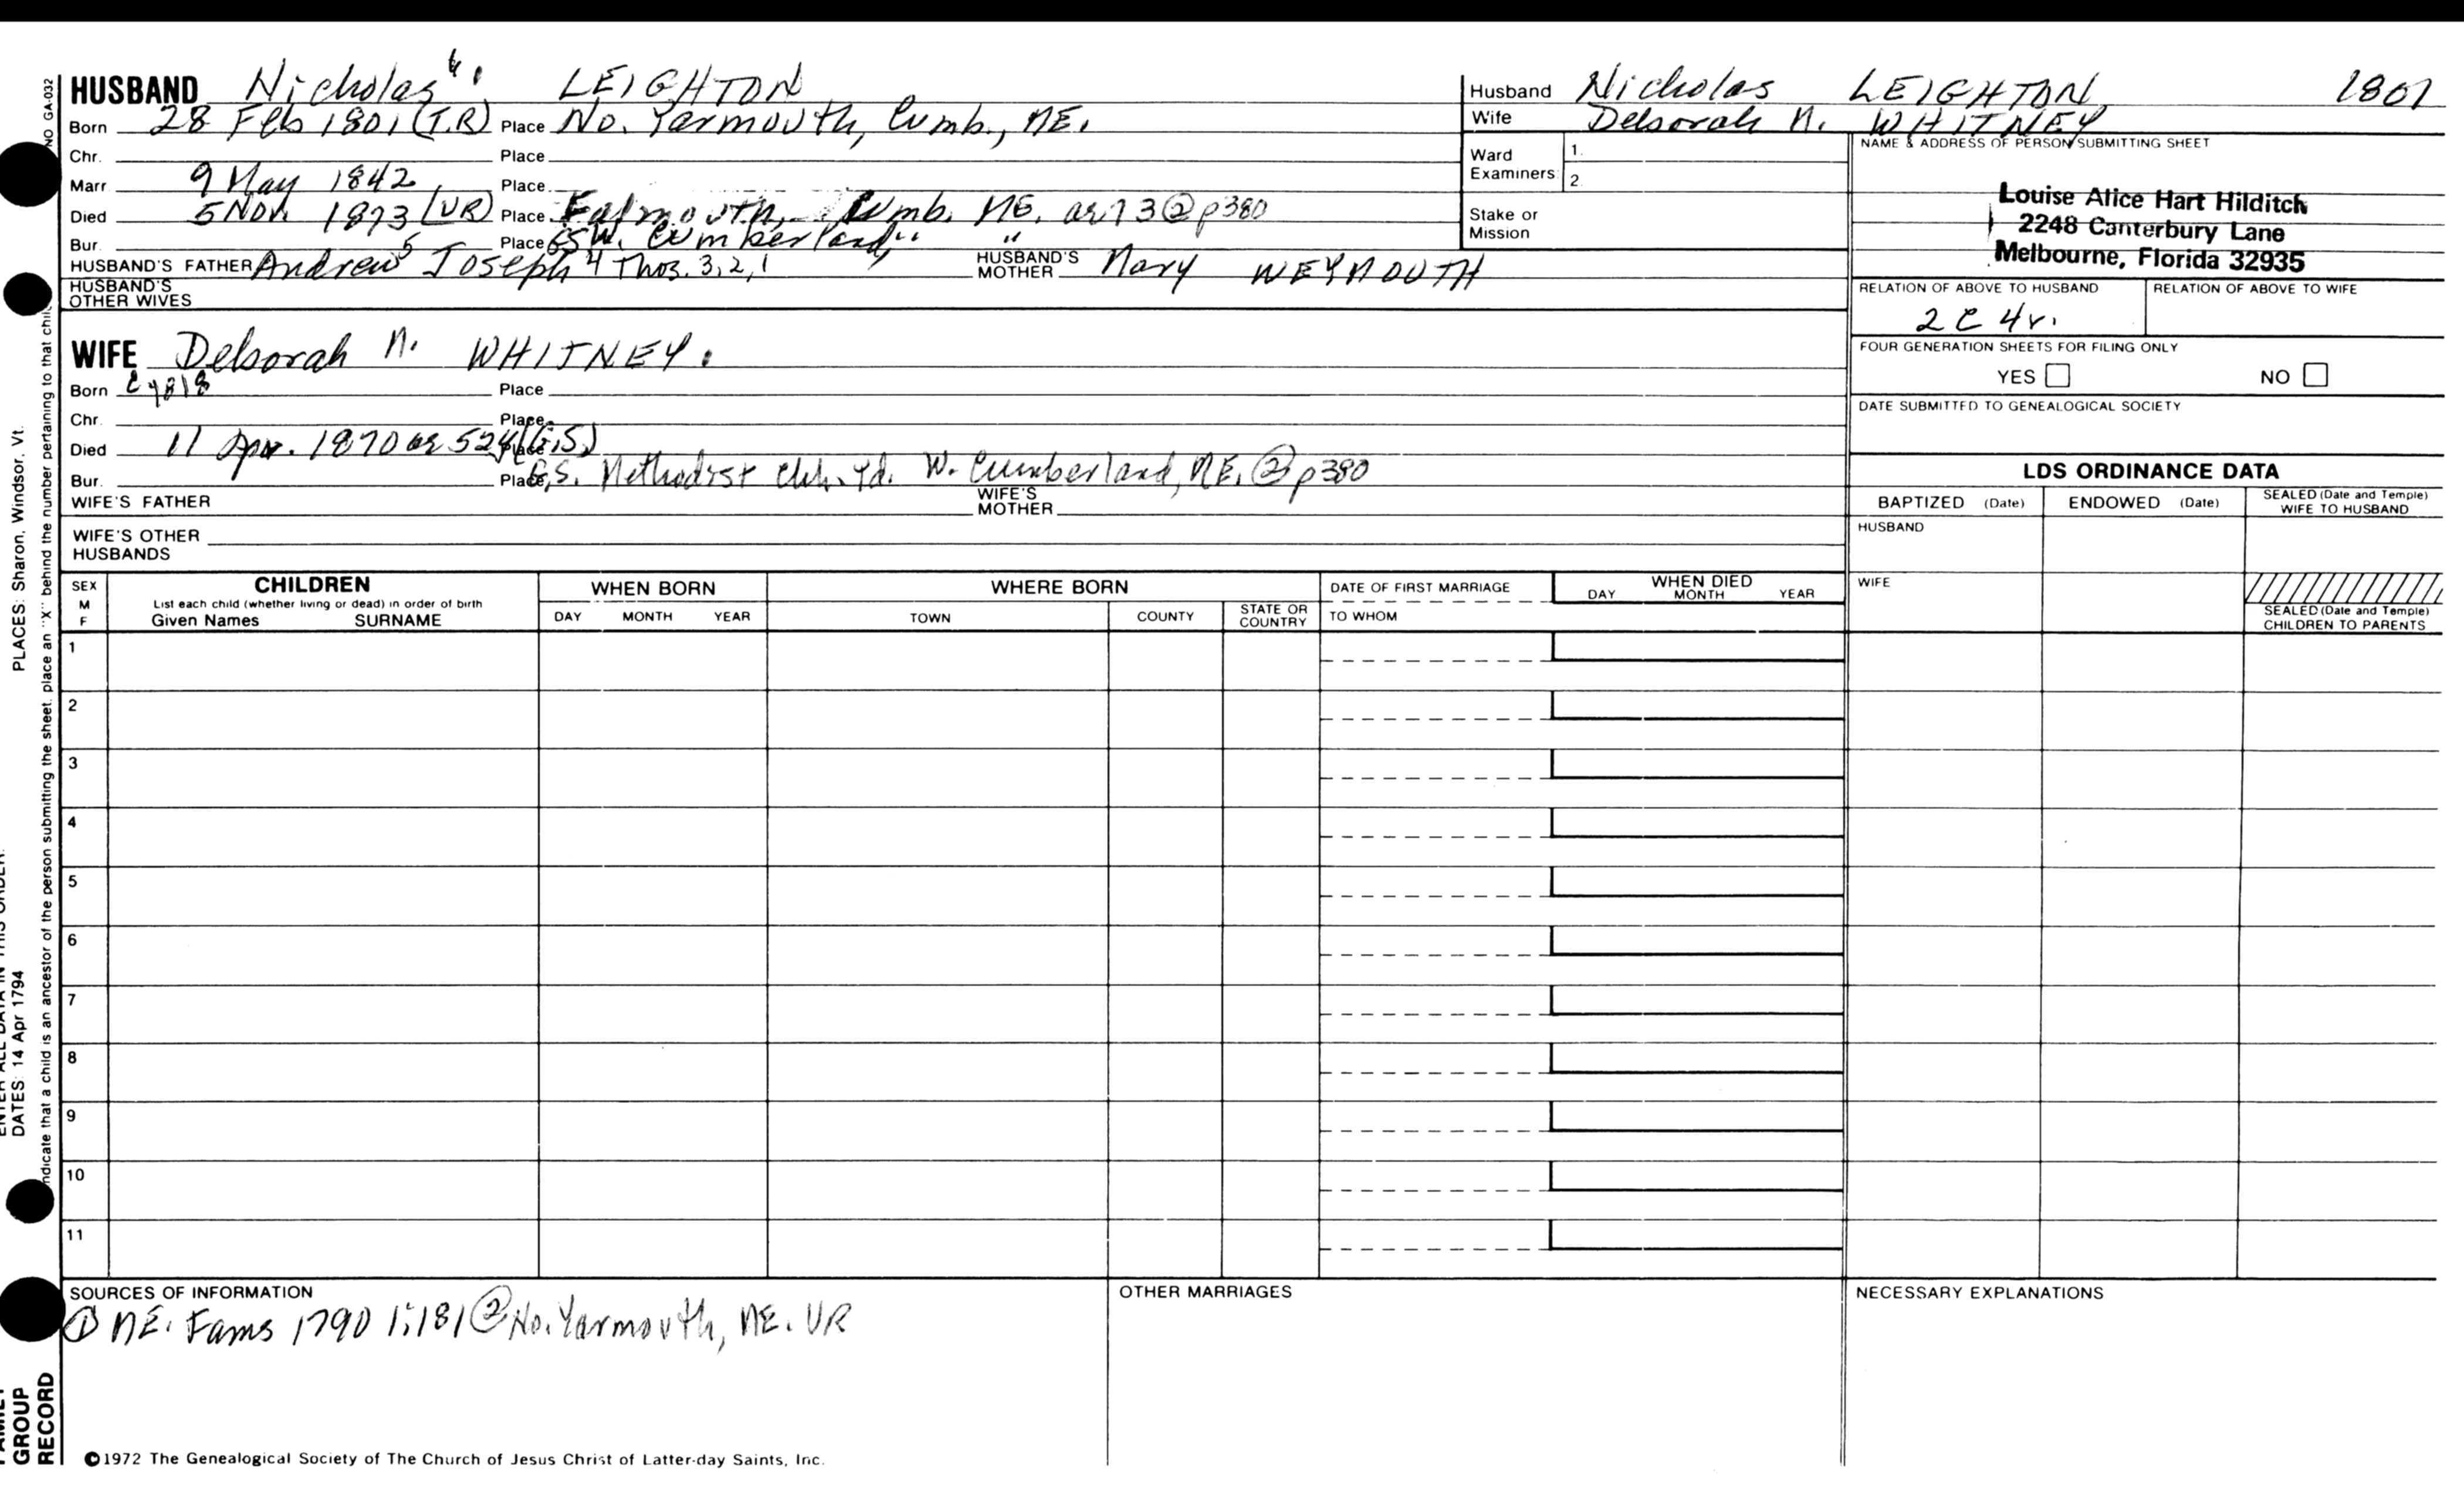 HUSBAND Nicholas 6. LEIGHTON
Born 28 Feb 1801 (T.R) Place No. Yarmouth, Cumb., ME.
Chr. Place
Marr. 9 May 1842 Place
Died 5 Nov. 1873 (VR) Place Falmouth, Cumb. ME. ae 73 ② p380
Bur. Place GS W. Cumberland, " "
HUSBAND'S FATHER Andrew 5 Joseph 4 Thos. 3, 2, 1 HUSBAND'S MOTHER Mary WEYMOUTH
HUSBAND'S OTHER WIVES
WIFE Deborah M. WHITNEY.
Born c 1818 Place
Chr. Place
Died 11 Apr. 1870 ae 52y (G.S) Place
Bur. Place G.S. Methodist Chh. Yd. W. Cumberland, ME. ② p380
WIFE'S FATHER WIFE'S MOTHER
WIFE'S OTHER HUSBANDS
Husband Nicholas LEIGHTON 1801
Wife Deborah M. WHITNEY
Ward Examiners 1. 2
Stake or Mission
NAME & ADDRESS OF PERSON SUBMITTING SHEET
Louise Alice Hart Hilditch
2248 Canterbury Lane
Melbourne, Florida 32935
RELATION OF ABOVE TO HUSBAND RELATION OF ABOVE TO WIFE
2 C 4 r.
FOUR GENERATION SHEETS FOR FILING ONLY
YES NO
DATE SUBMITTED TO GENEALOGICAL SOCIETY
LDS ORDINANCE DATA
BAPTIZED (Date) ENDOWED (Date) SEALED (Date and Temple) WIFE TO HUSBAND
HUSBAND
WIFE
SEALED (Date and Temple) CHILDREN TO PARENTS
SEX M F
CHILDREN
List each child (whether living or dead) in order of birth
Given Names SURNAME
WHEN BORN
DAY MONTH YEAR
WHERE BORN
TOWN COUNTY STATE OR COUNTRY
DATE OF FIRST MARRIAGE
TO WHOM
WHEN DIED
DAY MONTH YEAR
1
2
3
4
5
6
7
8
9
10
11
SOURCES OF INFORMATION
① ME. Fams 1790 1:181 ② No. Yarmouth, ME. VR
OTHER MARRIAGES
NECESSARY EXPLANATIONS
©1972 The Genealogical Society of The Church of Jesus Christ of Latter-day Saints, Inc.
NO GA-032
PLACES: Sharon, Windsor, Vt.
DATES: 14 Apr 1794
indicate that a child is an ancestor of the person submitting the sheet, place an "X" behind the number pertaining to that
GROUP
RECORD